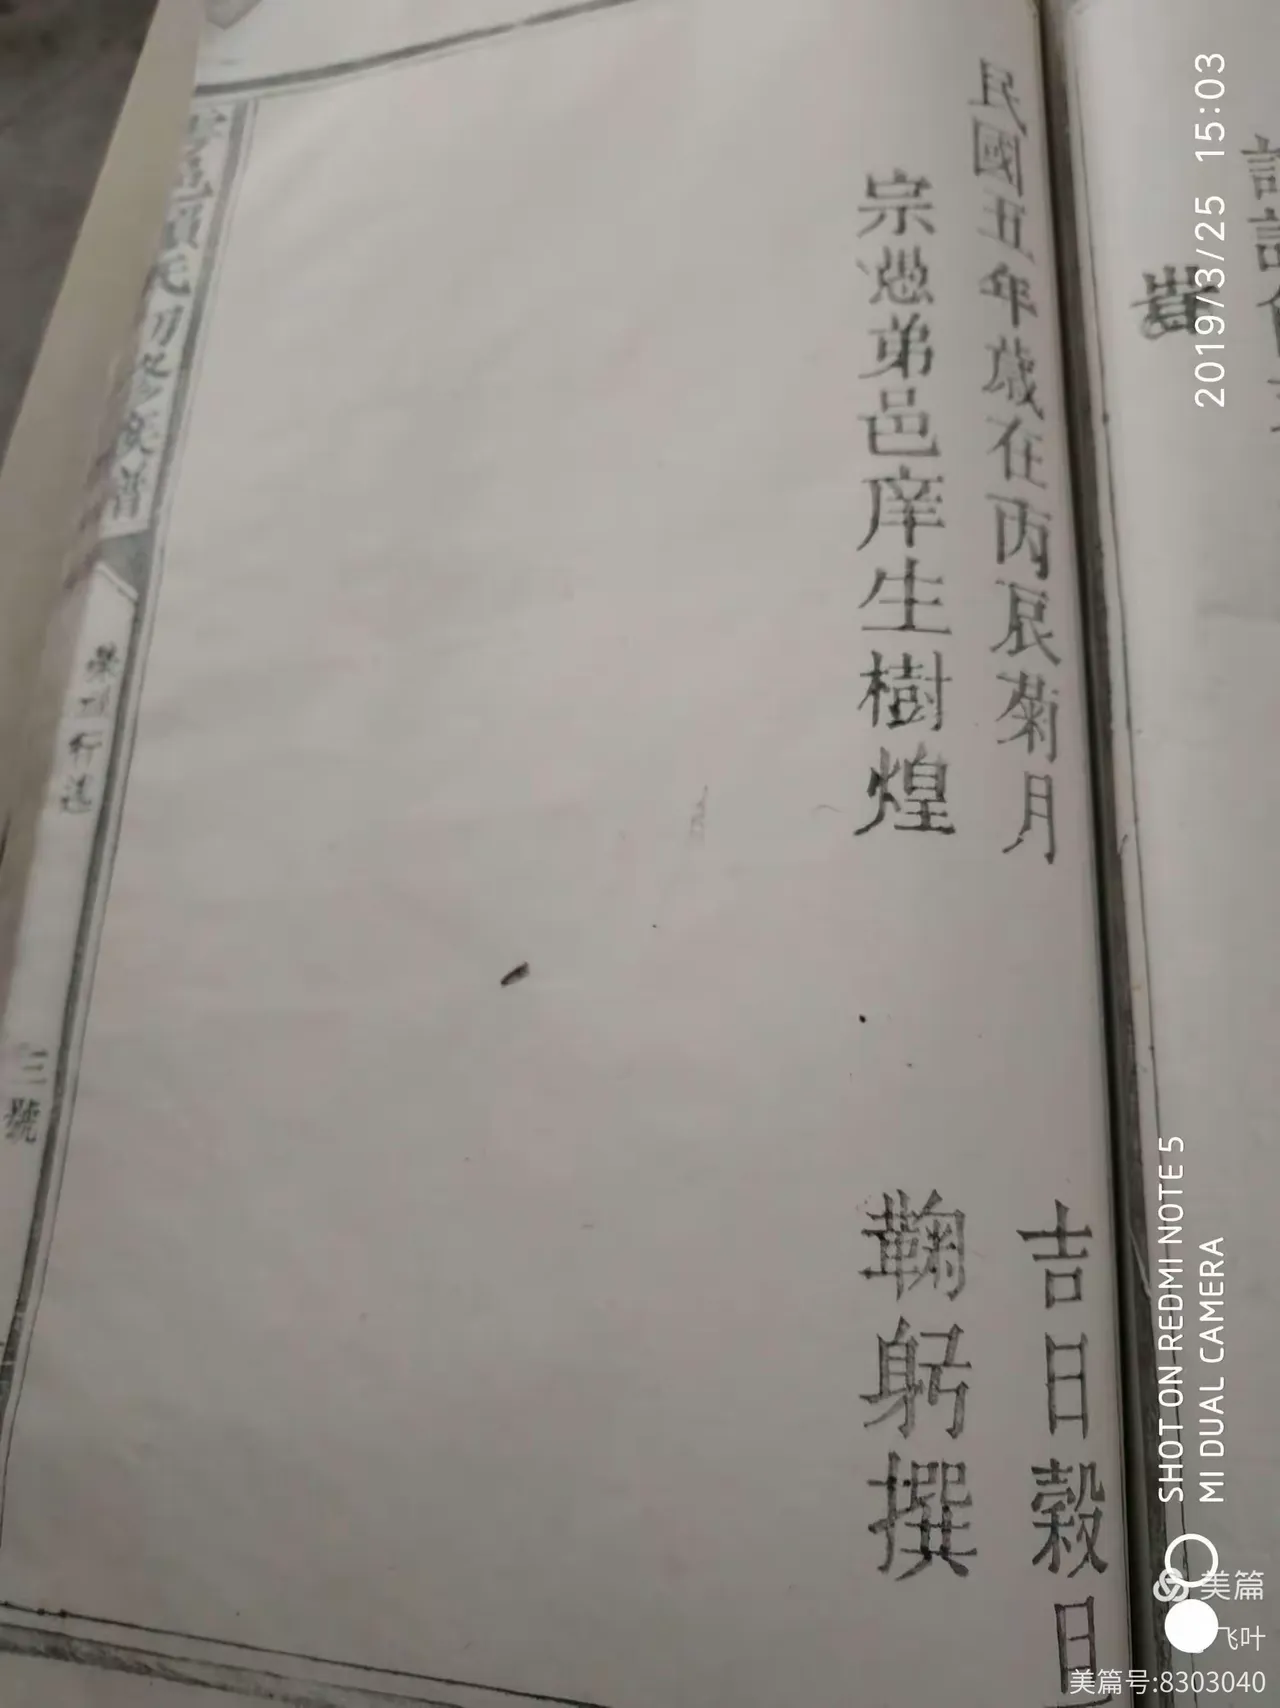 民國五年歲在丙辰菊月 吉日穀日
宗愚弟邑庠生樹煌 鞠躬撰
氏初修族譜
行述
三號
2019/3/25 15:03
SHOT ON REDMI NOTE 5
MI DUAL CAMERA
美篇
飞叶
美篇号:8303040